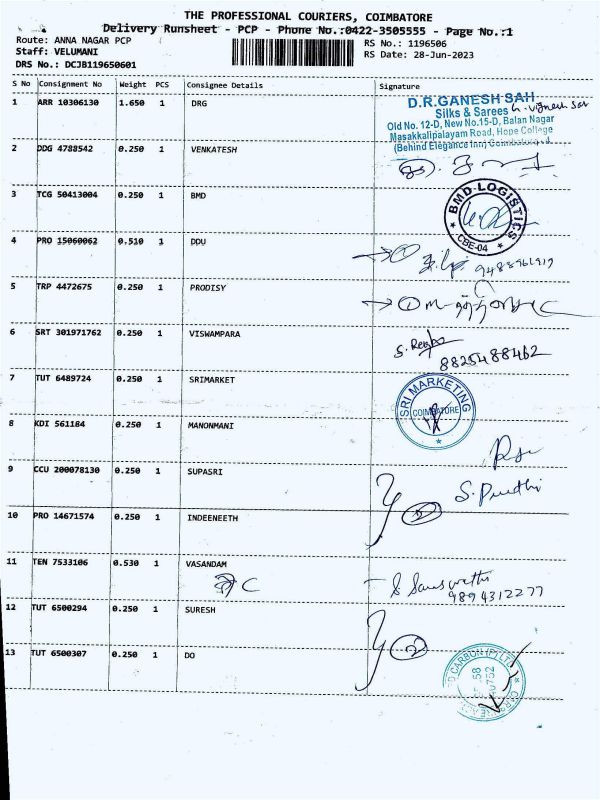 THE PROFESSIONAL COURIERS, COIMBATORE
Delivery Runsheet - PCP - Phone No.:0422-3505555 - Page No.:1
Route: ANNA NAGAR PCP
RS No.: 1196506
Staff: VELUMANI
RS Date: 28-Jun-2023
DRS No.: DCJB119650601
S No Consignment No Weight PCS Consignee Details Signature
1 ARR 10306130 1.650 1 DRG
D.R.GANESH SAH
Silks & Sarees
Old No. 12-D, New No.15-D, Balan Nagar
Masakkalipalayam Road, Hope College
(Behind Elegance Inn) Coimbatore
2 DDG 4788542 0.250 1 VENKATESH
3 TCG 50413004 0.250 1 BMD
BMD LOGISTICS
CBE-04
4 PRO 15060062 0.510 1 DDU
5 TRP 4472675 0.250 1 PRODISY
6 SRT 301971762 0.250 1 VISWAMPARA
8825488462
7 TUT 6489724 0.250 1 SRIMARKET
SRI MARKETING
COIMBATORE
8 KDI 561184 0.250 1 MANONMANI
9 CCU 200078130 0.250 1 SUPASRI
10 PRO 14671574 0.250 1 INDEENEETH
11 TEN 7533106 0.530 1 VASANDAM
9894312277
12 TUT 6500294 0.250 1 SURESH
13 TUT 6500307 0.250 1 DO